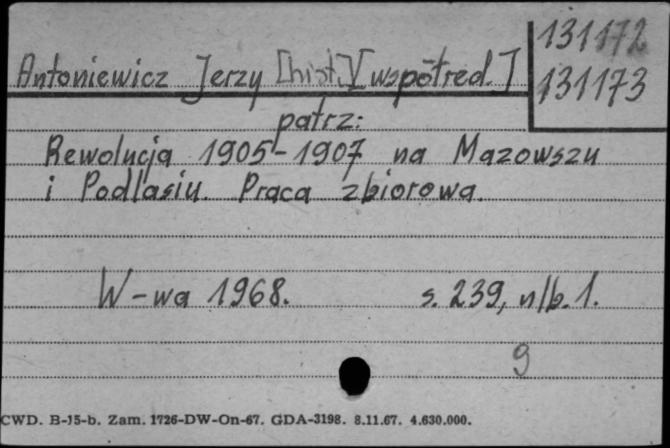 131172
Antoniewicz Jerzy [hist.] [współred.]
131173
patrz:
Rewolucja 1905-1907 na Mazowszu
i Podlasiu. Praca zbiorowa.
W-wa 1968. s. 239, nlb. 1.
9
CWD. B-15-b. Zam. 1726-DW-On-67. GDA-3198. 8.11.67. 4.630.000.